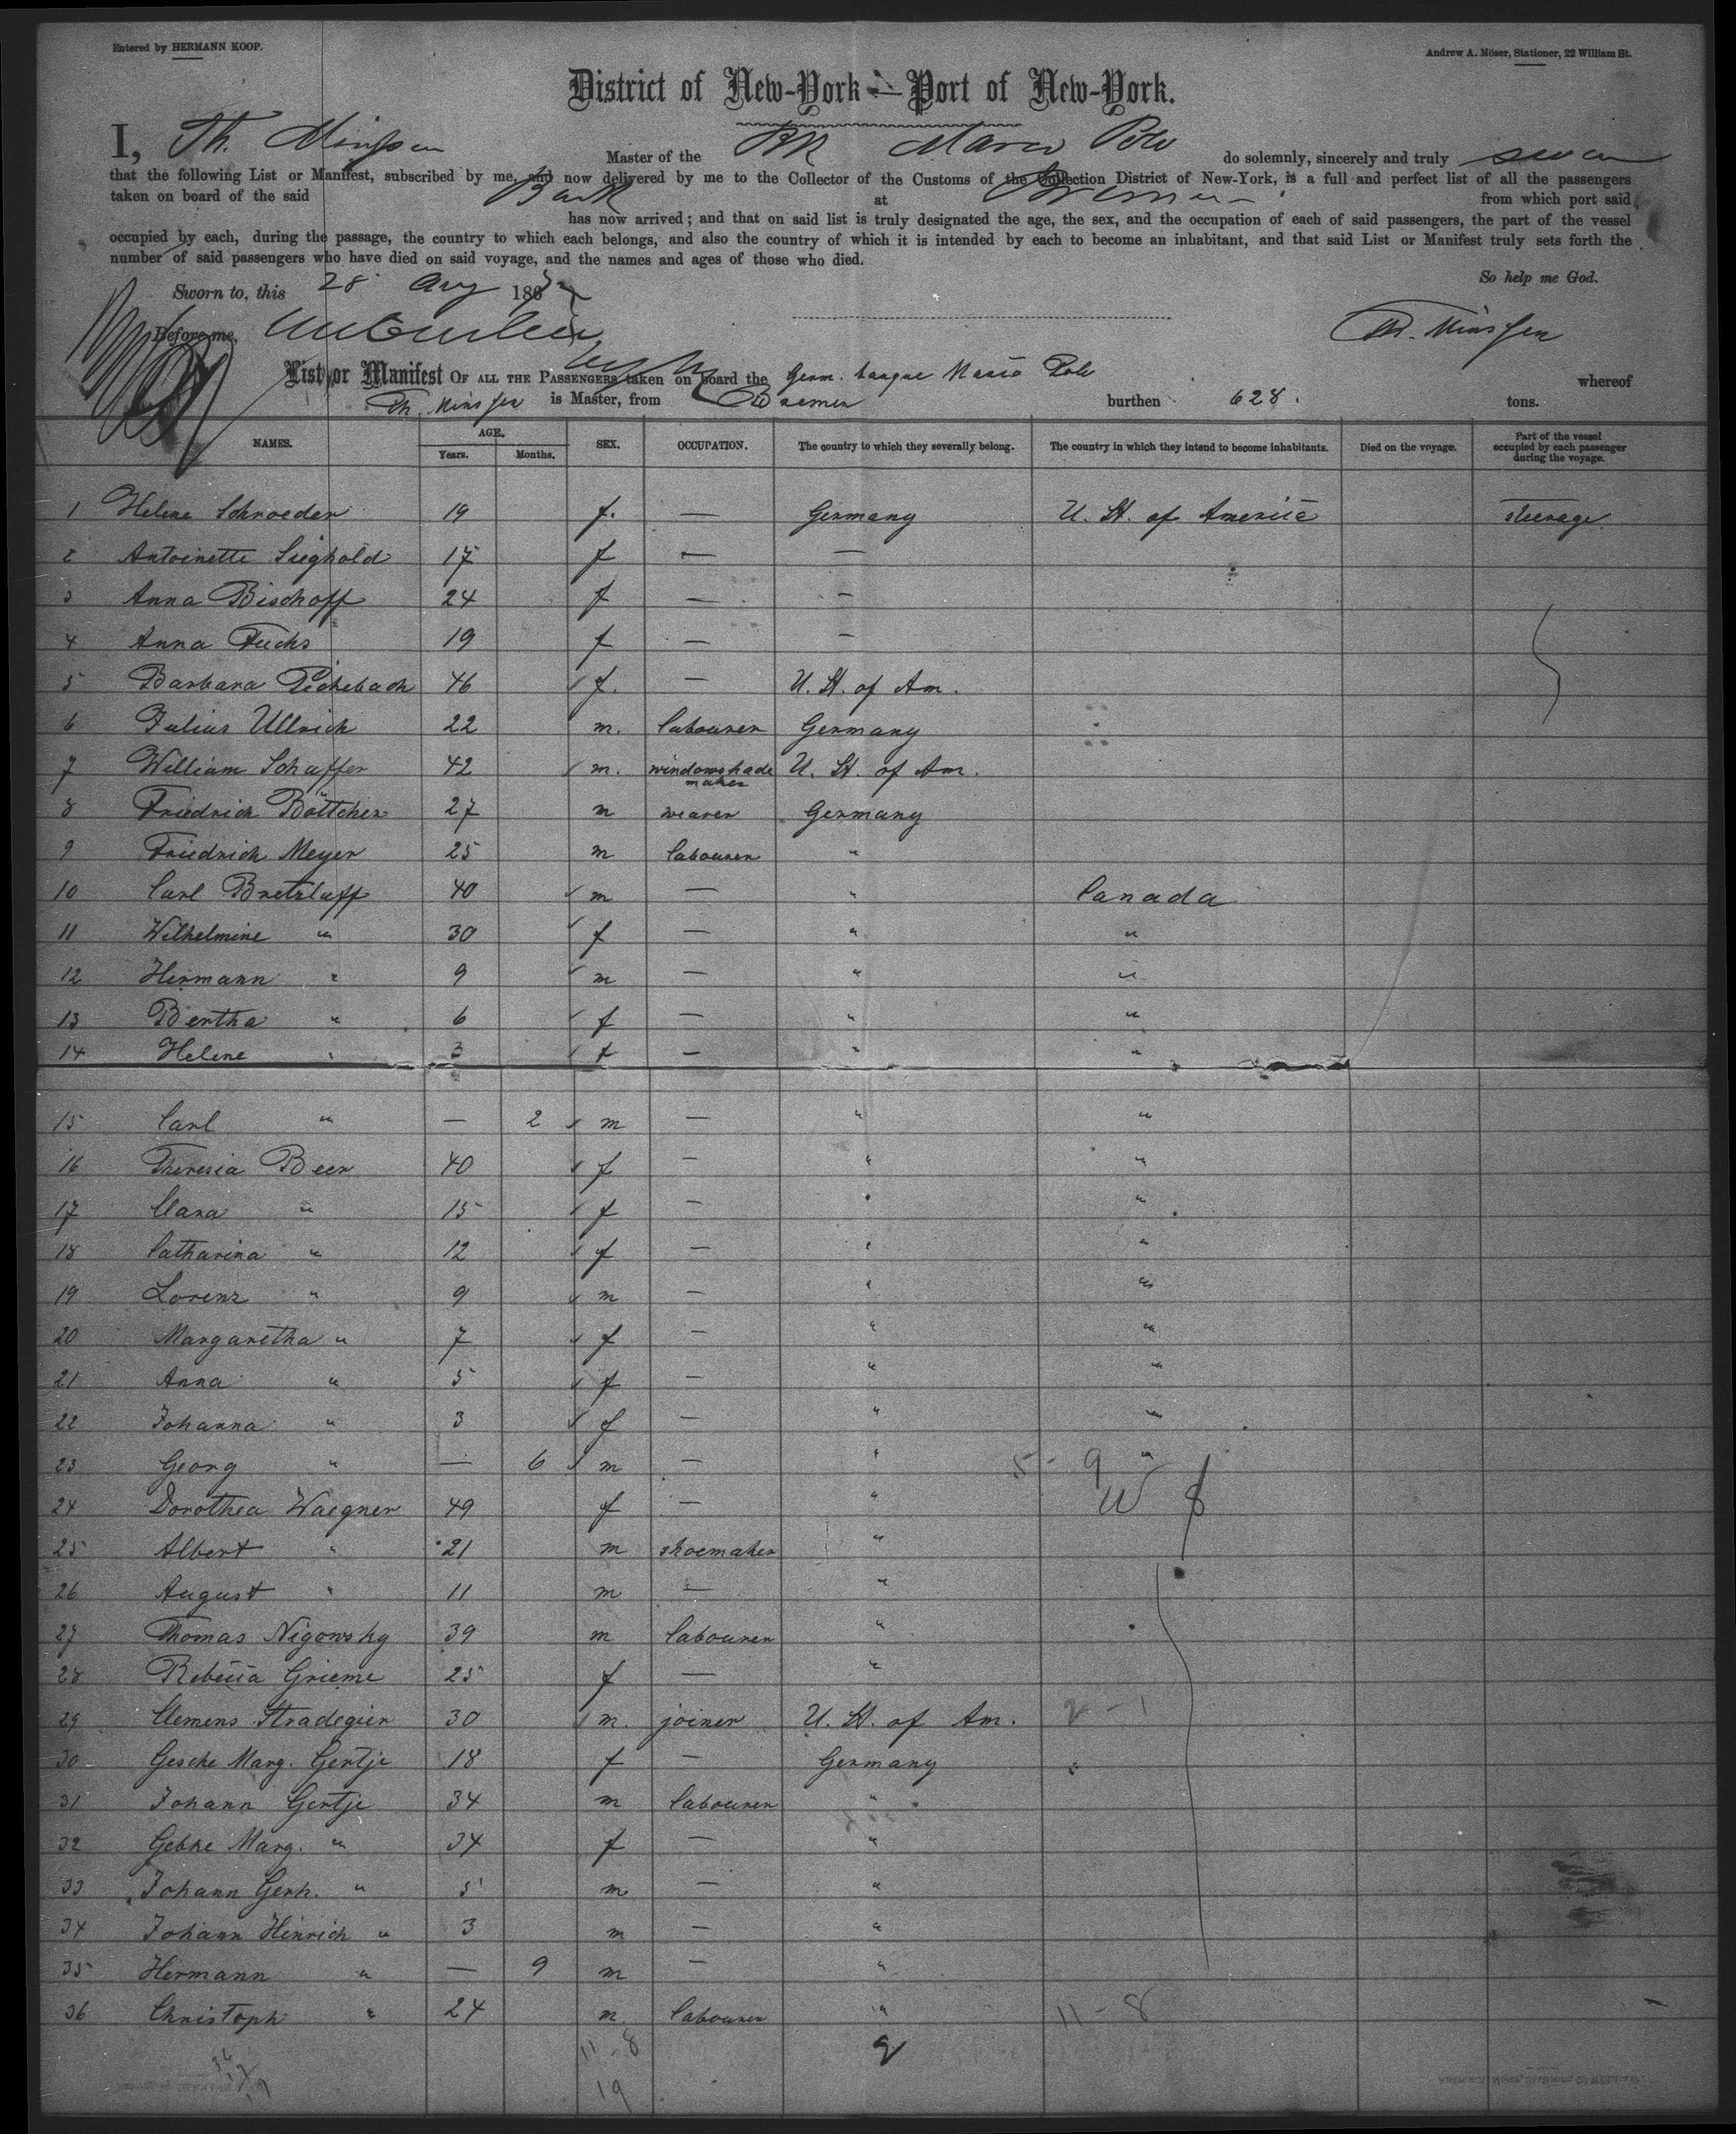 Entered by HERMANN KOOP.
Andrew A. Möser, Stationer, 22 William St.
District of New-York — Port of New-York.
I, Th. Minssen Master of the BK Marco Polo do solemnly, sincerely and truly swear
that the following List or Manifest, subscribed by me, and now delivered by me to the Collector of the Customs of the Collection District of New-York, is a full and perfect list of all the passengers
taken on board of the said Bark at Bremen from which port said
has now arrived; and that on said list is truly designated the age, the sex, and the occupation of each of said passengers, the part of the vessel
occupied by each, during the passage, the country to which each belongs, and also the country of which it is intended by each to become an inhabitant, and that said List or Manifest truly sets forth the
number of said passengers who have died on said voyage, and the names and ages of those who died.
So help me God.
Sworn to, this 28 Aug 186
Th. Minssen
Before me,
List or Manifest OF ALL THE PASSENGERS taken on board the Germ. barque Marco Polo whereof
Th. Minssen is Master, from Bremen burthen 628. tons.
NAMES. AGE. Years. Months. SEX. OCCUPATION. The country to which they severally belong. The country in which they intend to become inhabitants. Died on the voyage. Part of the vessel occupied by each passenger during the voyage.
1 Helene Schroeder 19 f. — Germany U. St. of America steerage
2 Antoinette Sieghold 17 f — —
3 Anna Bischoff 24 f — —
4 Anna Fuchs 19 f — —
5 Barbara 46 f. — U. St. of Am.
6 Julius Ullrich 22 m. labourer Germany
7 William Schaffer 42 m. windowshade maker U. St. of Am.
8 Friedrich Böttcher 27 m weaver Germany
9 Friedrich Meyer 25 m labourer "
10 Carl Bretzlaff 40 m — " Canada
11 Wilhelmine " 30 f — " "
12 Hermann " 9 m — " "
13 Bertha " 6 f — " "
14 Helene " 3 f — " "
15 Carl " — 2 m — " "
16 Theresia Beer 40 f — " "
17 Clara " 15 f — " "
18 Catharina " 12 f — " "
19 Lorenz " 9 m — " "
20 Margaretha " 7 f — " "
21 Anna " 5 f — " "
22 Johanna " 3 f — " "
23 Georg " — 6 m — " 5 - 9 "
24 Dorothea Waegner 49 f — "
25 Albert " 21 m shoemaker "
26 August " 11 m — "
27 Thomas Nigowsky 39 m labourer "
28 Rebecca Grieme 25 f — "
29 Clemens Stradegier 30 m. joiner U. St. of Am. 2 - 1
30 Gesche Marg. Gertje 18 f — Germany
31 Johann Gertje 34 m labourer "
32 Gebke Marg. " 34 f — "
33 Johann Gerh. " 5 m — "
34 Johann Hinrich " 3 m — "
35 Hermann " — 9 m — "
36 Christoph " 24 m. labourer " 11 - 8
11 - 8
19